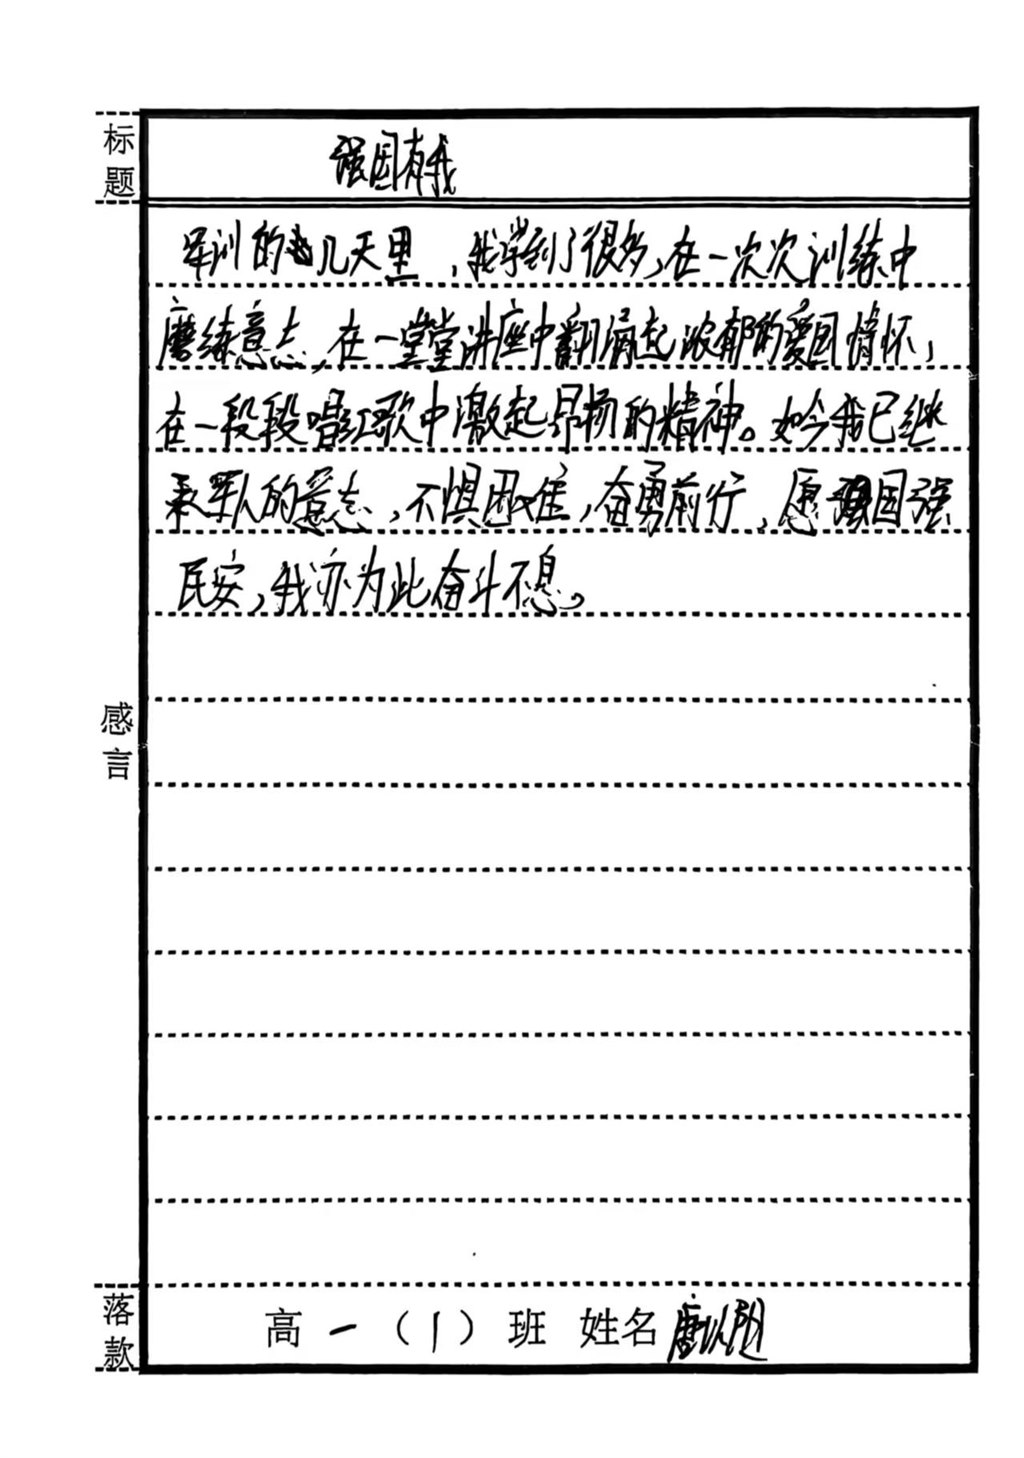 标题
强国有我
军训的几天里，我学到了很多，在一次次训练中
磨练意志，在一堂堂讲座中翻涌起浓郁的爱国情怀，
在一段段唱红歌中激起昂扬的精神。如今我已继
承军人的意志，不惧困难，奋勇前行，愿国强
民安，我亦为此奋斗不息。
感言
落款
高一（1）班 姓名唐